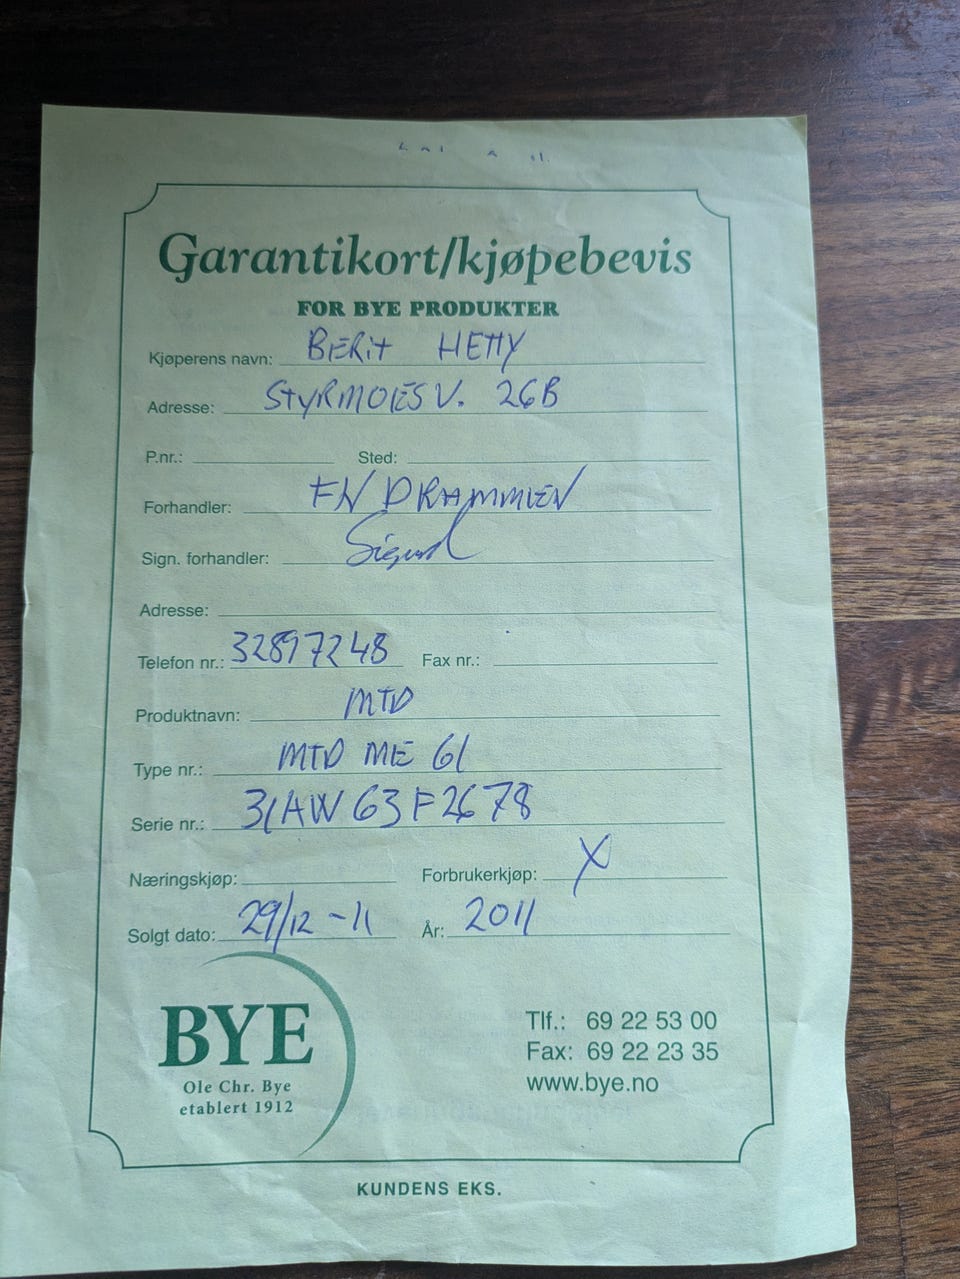 Garantikort/kjøpebevis
FOR BYE PRODUKTER
Kjøperens navn: BERIT HETTY
Adresse: STYRMOESV. 26B
P.nr.: Sted:
Forhandler: FN DRAMMEN
Sign. forhandler: Sigurd
Adresse:
Telefon nr.: 32897248 Fax nr.:
Produktnavn: MTD
Type nr.: MTD ME 61
Serie nr.: 31AW63F2678
Næringskjøp: Forbrukerkjøp: X
Solgt dato: 29/12-11 År: 2011
BYE
Ole Chr. Bye
etablert 1912
Tlf.: 69 22 53 00
Fax: 69 22 23 35
www.bye.no
KUNDENS EKS.